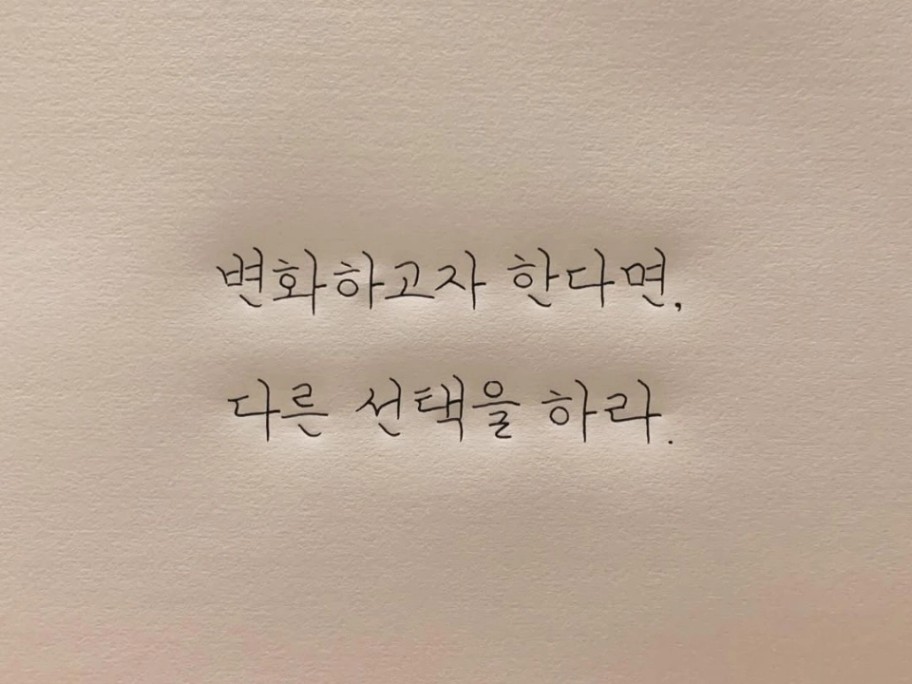 변화하고자 한다면,
다른 선택을 하라.